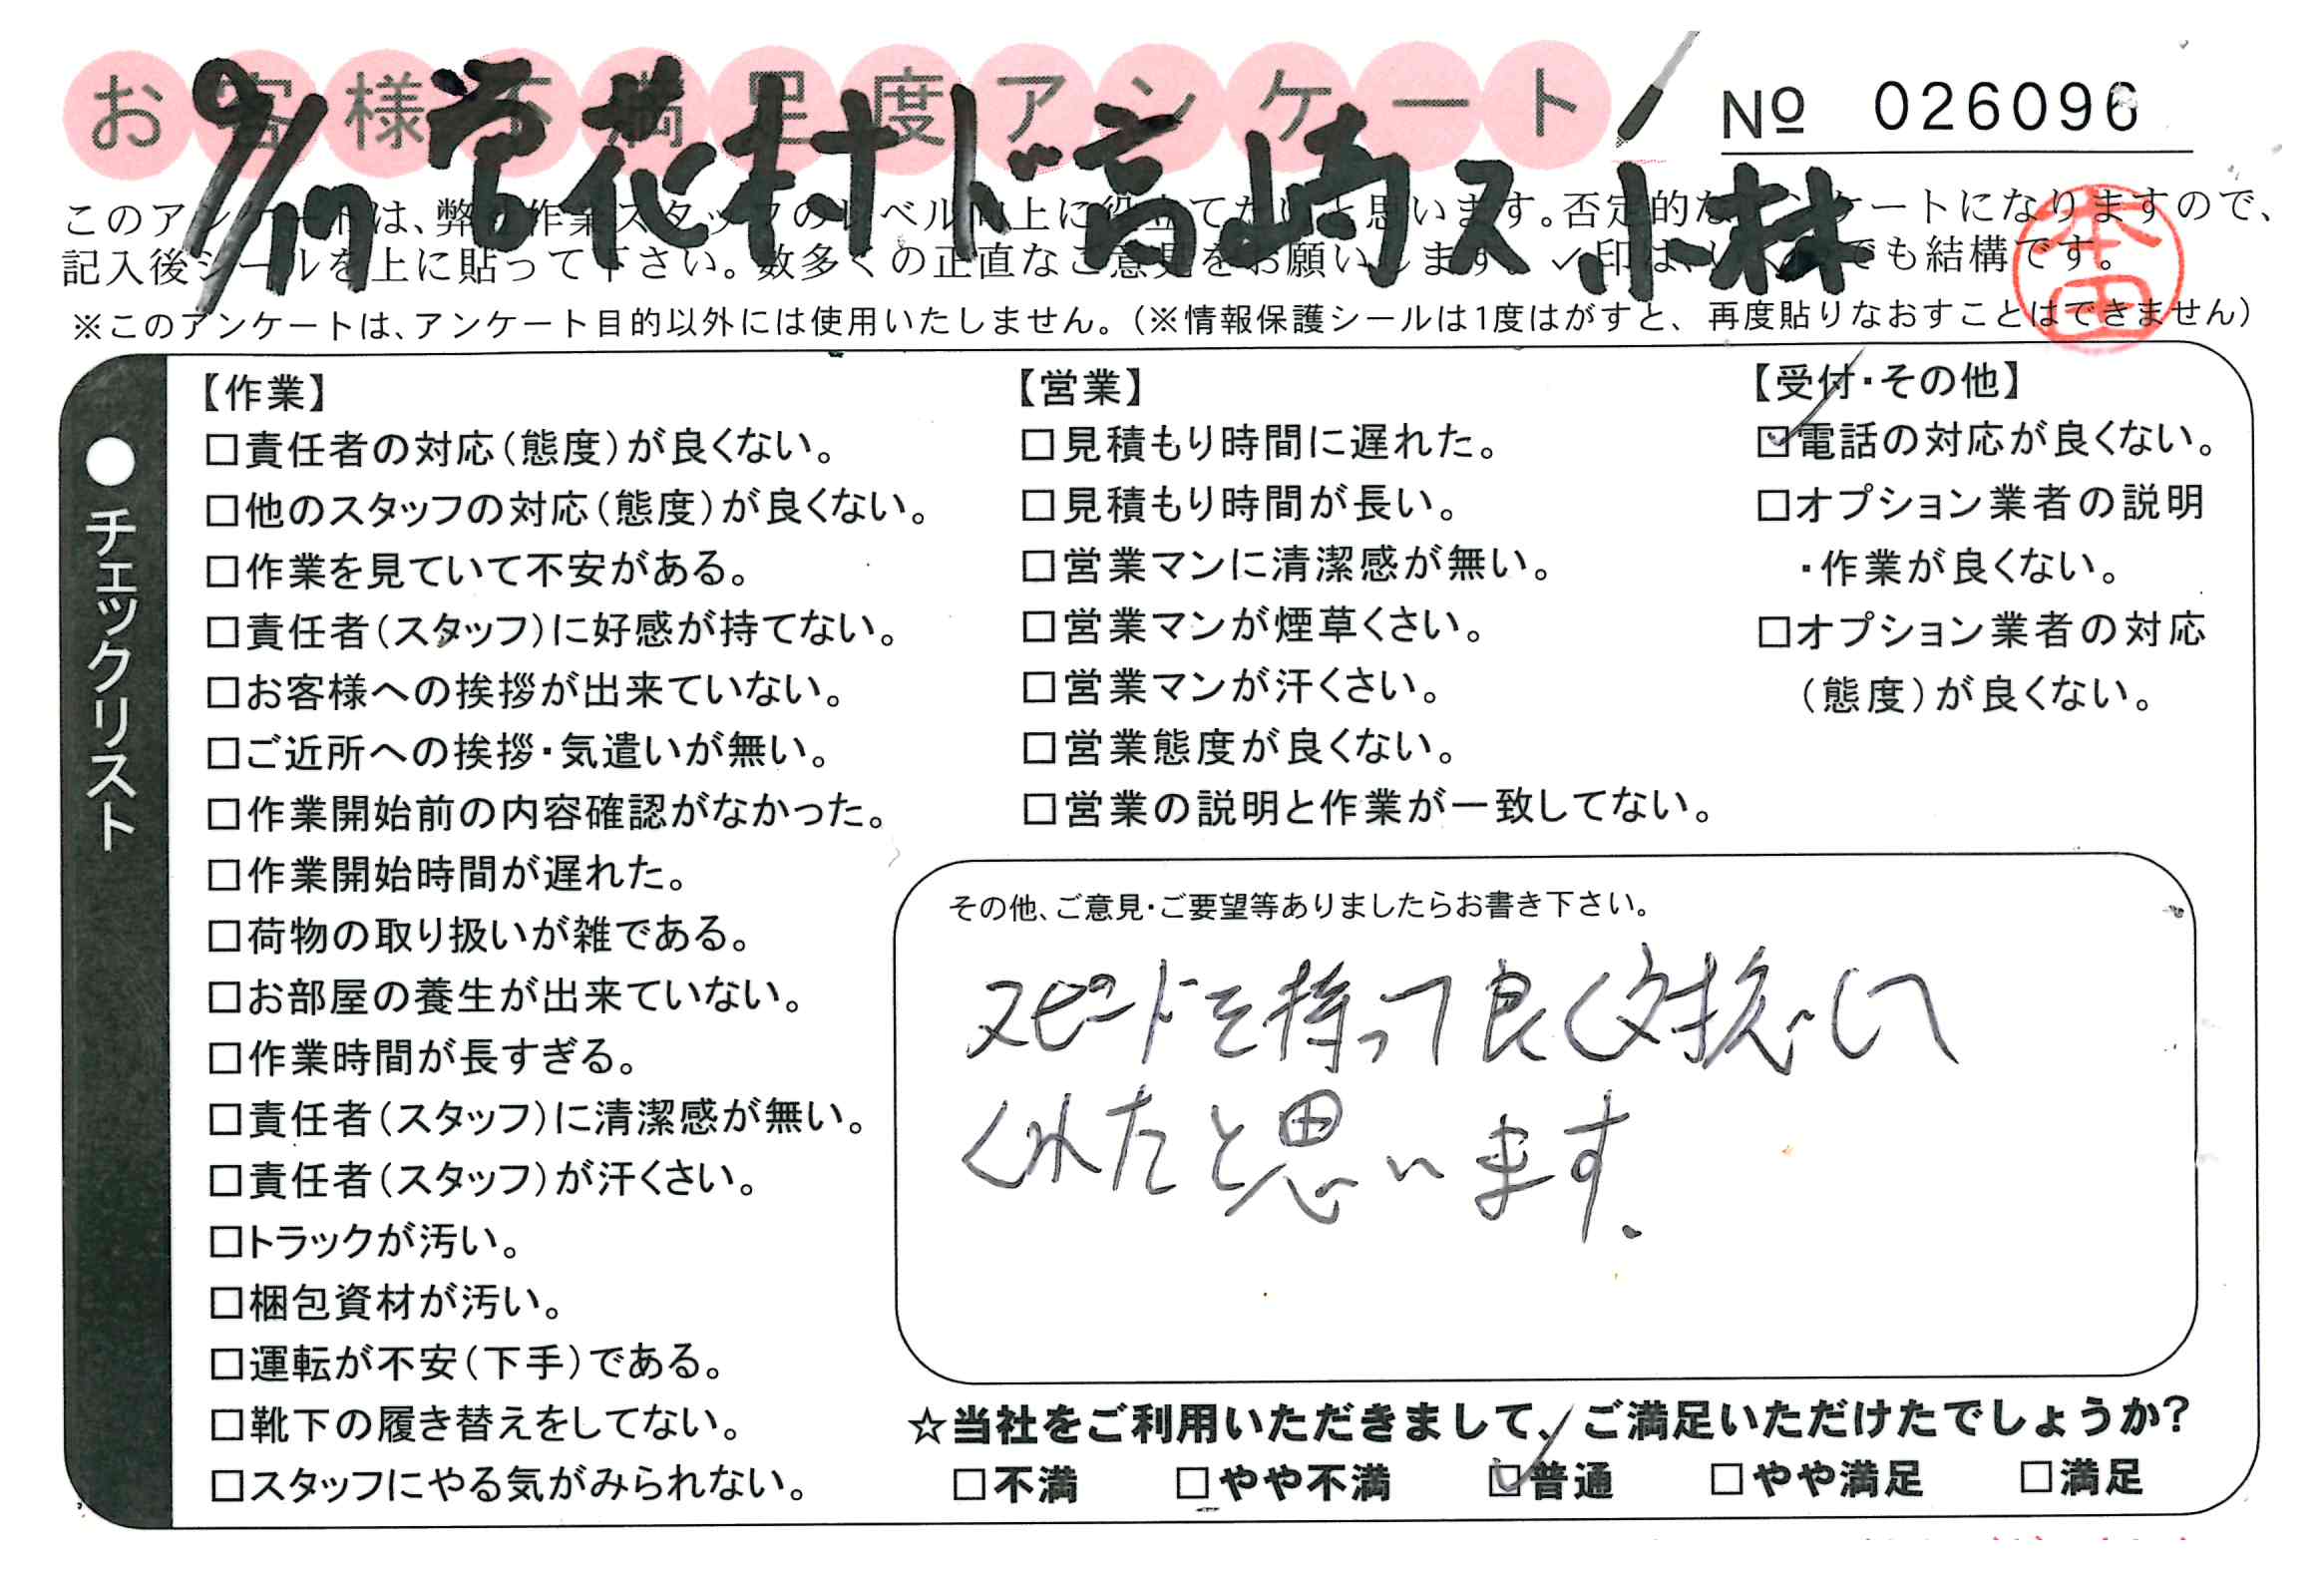 お客様不満足度アンケート
№ 026096
9/17 営 花村 ド 高崎 ス 小林
このアンケートは、弊社作業スタッフのレベル向上に役立てたいと思います。否定的なアンケートになりますので、
記入後シールを上に貼って下さい。数多くの正直なご意見をお願いします。✓印は、いくつでも結構です。
本田
※このアンケートは、アンケート目的以外には使用いたしません。(※情報保護シールは1度はがすと、再度貼りなおすことはできません)
●チェックリスト
【作業】
□責任者の対応(態度)が良くない。
□他のスタッフの対応(態度)が良くない。
□作業を見ていて不安がある。
□責任者(スタッフ)に好感が持てない。
□お客様への挨拶が出来ていない。
□ご近所への挨拶・気遣いが無い。
□作業開始前の内容確認がなかった。
□作業開始時間が遅れた。
□荷物の取り扱いが雑である。
□お部屋の養生が出来ていない。
□作業時間が長すぎる。
□責任者(スタッフ)に清潔感が無い。
□責任者(スタッフ)が汗くさい。
□トラックが汚い。
□梱包資材が汚い。
□運転が不安(下手)である。
□靴下の履き替えをしてない。
□スタッフにやる気がみられない。
【営業】
□見積もり時間に遅れた。
□見積もり時間が長い。
□営業マンに清潔感が無い。
□営業マンが煙草くさい。
□営業マンが汗くさい。
□営業態度が良くない。
□営業の説明と作業が一致してない。
【受付・その他】
☑電話の対応が良くない。
□オプション業者の説明
・作業が良くない。
□オプション業者の対応
(態度)が良くない。
その他、ご意見・ご要望等ありましたらお書き下さい。
スピードを持って良く対応して
くれたと思います.
☆当社をご利用いただきまして、ご満足いただけたでしょうか?
□不満 □やや不満 ☑普通 □やや満足 □満足